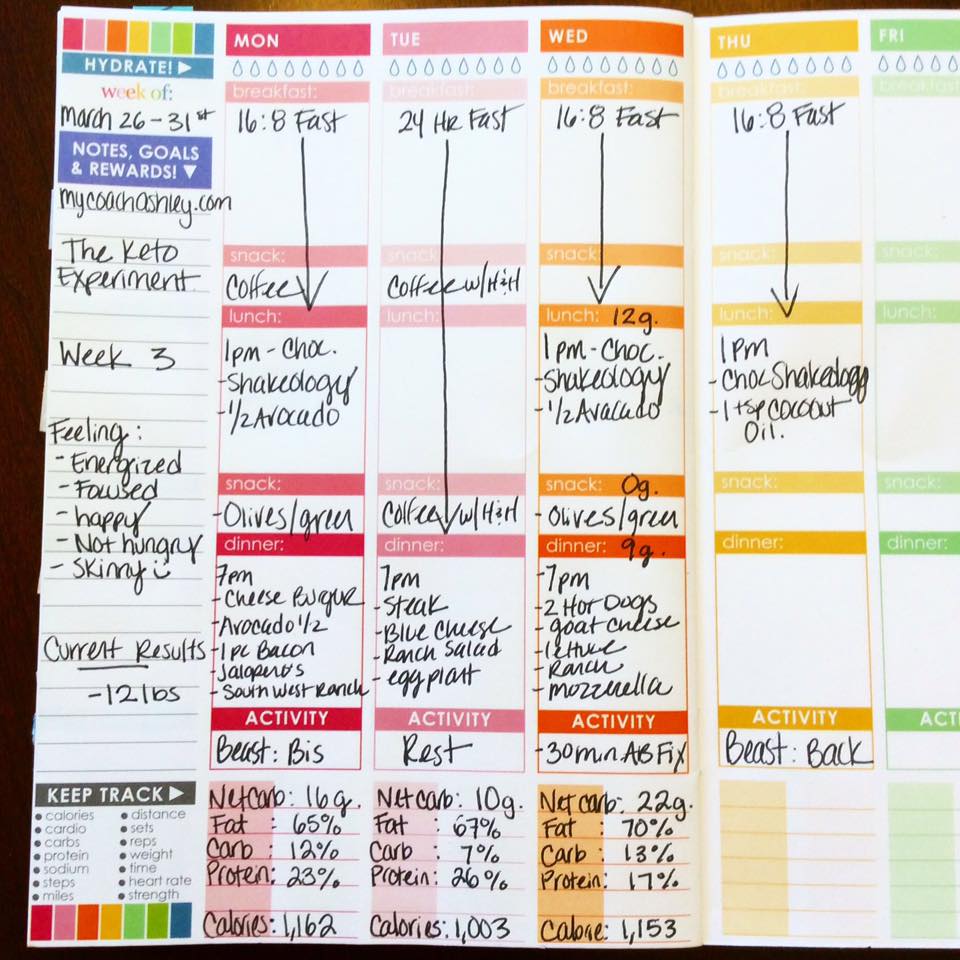 HYDRATE!
week of:
March 26-31st
NOTES, GOALS
& REWARDS!
mycoachashley.com
The Keto
Experiment
Week 3
Feeling:
- Energized
- Focused
- happy
- Not hungry
- Skinny
Current Results
-12lbs
KEEP TRACK
• calories
• cardio
• carbs
• protein
• sodium
• steps
• miles
• distance
• sets
• reps
• weight
• time
• heart rate
• strength
MON
breakfast:
16:8 Fast
snack:
Coffee
lunch:
1pm - Choc.
- Shakeology
- 1/2 Avocado
snack:
- Olives/green
dinner:
7pm
- Cheese Burgur
- Avocado 1/2
- 1pc Bacon
- Jalapeno's
- South West Ranch
ACTIVITY
Beast: Bis
Net carb: 16g.
Fat : 65%
Carb : 12%
Protein: 23%
Calories: 1,162
TUE
breakfast:
24 Hr Fast
snack:
Coffee w/H&H
lunch:
snack:
Coffee w/H&H
dinner:
7pm
- Steak
- Blue Cheese
- Ranch Salad
- eggplant
ACTIVITY
Rest
Net carb: 10g.
Fat : 67%
Carb : 7%
Protein: 26%
Calories: 1,003
WED
breakfast:
16:8 Fast
snack:
lunch: 12g.
1pm - Choc.
- Shakeology
- 1/2 Avacado
snack: 0g.
- Olives/green
dinner: 9g.
- 7pm
- 2 Hot Dogs
- goat cheese
- lettuce
- Ranch
- mozzerella
ACTIVITY
- 30min AB Fix
Net carb: 22g.
Fat : 70%
Carb : 13%
Protein: 17%
Calorie: 1,153
THU
breakfast:
16:8 Fast
snack:
lunch:
1pm
- Choc Shakeology
- 1 tsp Cocout
Oil.
snack:
dinner:
ACTIVITY
Beast: Back
FRI
breakfast:
snack:
lunch:
snack:
dinner:
ACTI